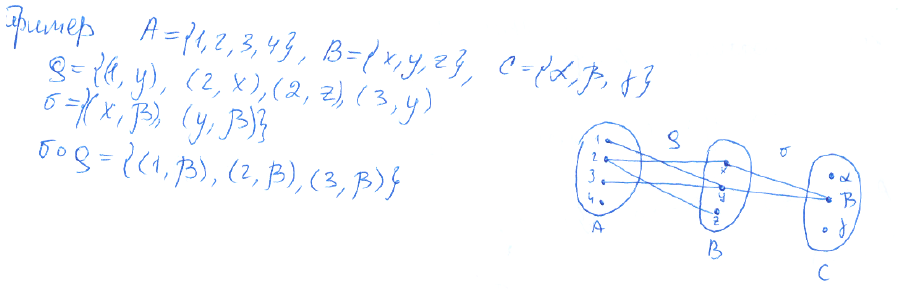 Пример A={1,2,3,4}, B={x,y,z}, C={α,β,γ}
ρ={(1,y), (2,x),(2,z),(3,y)
σ={(x,β), (y,β)}
σ∘ρ={(1,β),(2,β),(3,β)}
ρ σ
1 2 3 4
x y z
α β γ
A B C